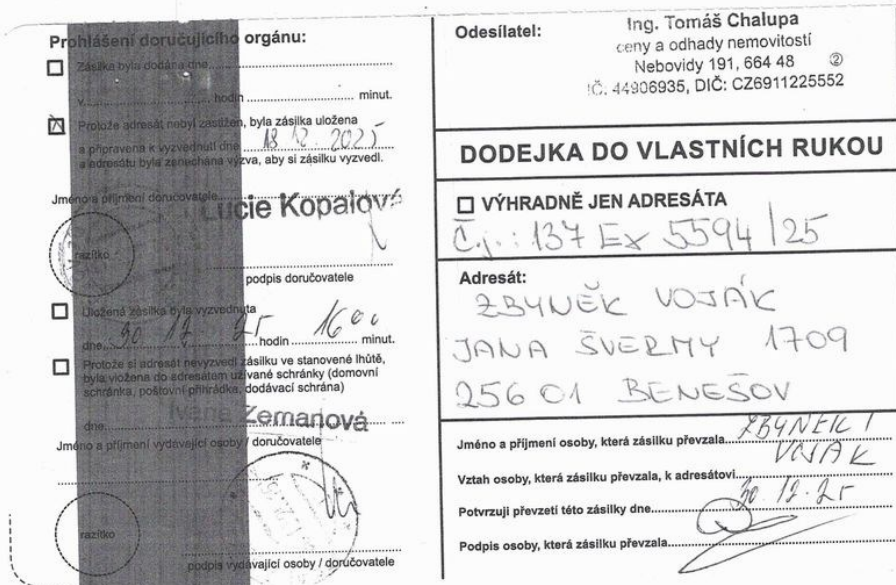 Prohlášení doručujícího orgánu:
Zásilka byla dodána dne
v hodin minut.
Protože adresát nebyl zastižen, byla zásilka uložena
a připravena k vyzvednutí dne 18 12. 2025
a adresátu byla zanechána výzva, aby si zásilku vyzvedl.
Jméno a příjmení doručovatele
Lucie Kopalová
razítko
podpis doručovatele
Uložená zásilka byla vyzvednuta
dne 30 12 25 hodin 16 00 minut.
Protože si adresát nevyzvedl zásilku ve stanovené lhůtě,
byla vložena do adresátem užívané schránky (domovní
schránka, poštovní přihrádka, dodávací schrána)
dne
Ivana Zemanová
Jméno a příjmení vydávající osoby / doručovatele
razítko
podpis vydávající osoby / doručovatele
Odesílatel:
Ing. Tomáš Chalupa
ceny a odhady nemovitostí
Nebovidy 191, 664 48 ②
IČ. 44906935, DIČ: CZ6911225552
DODEJKA DO VLASTNÍCH RUKOU
VÝHRADNĚ JEN ADRESÁTA
Č.j.: 137 Ex 5594/25
Adresát:
ZBYNĚK VOJÁK
JANA ŠVERMY 1709
256 01 BENEŠOV
Jméno a příjmení osoby, která zásilku převzala ZBYNEK
VOJÁK
Vztah osoby, která zásilku převzala, k adresátovi
Potvrzuji převzetí této zásilky dne 30 12. 25
Podpis osoby, která zásilku převzala